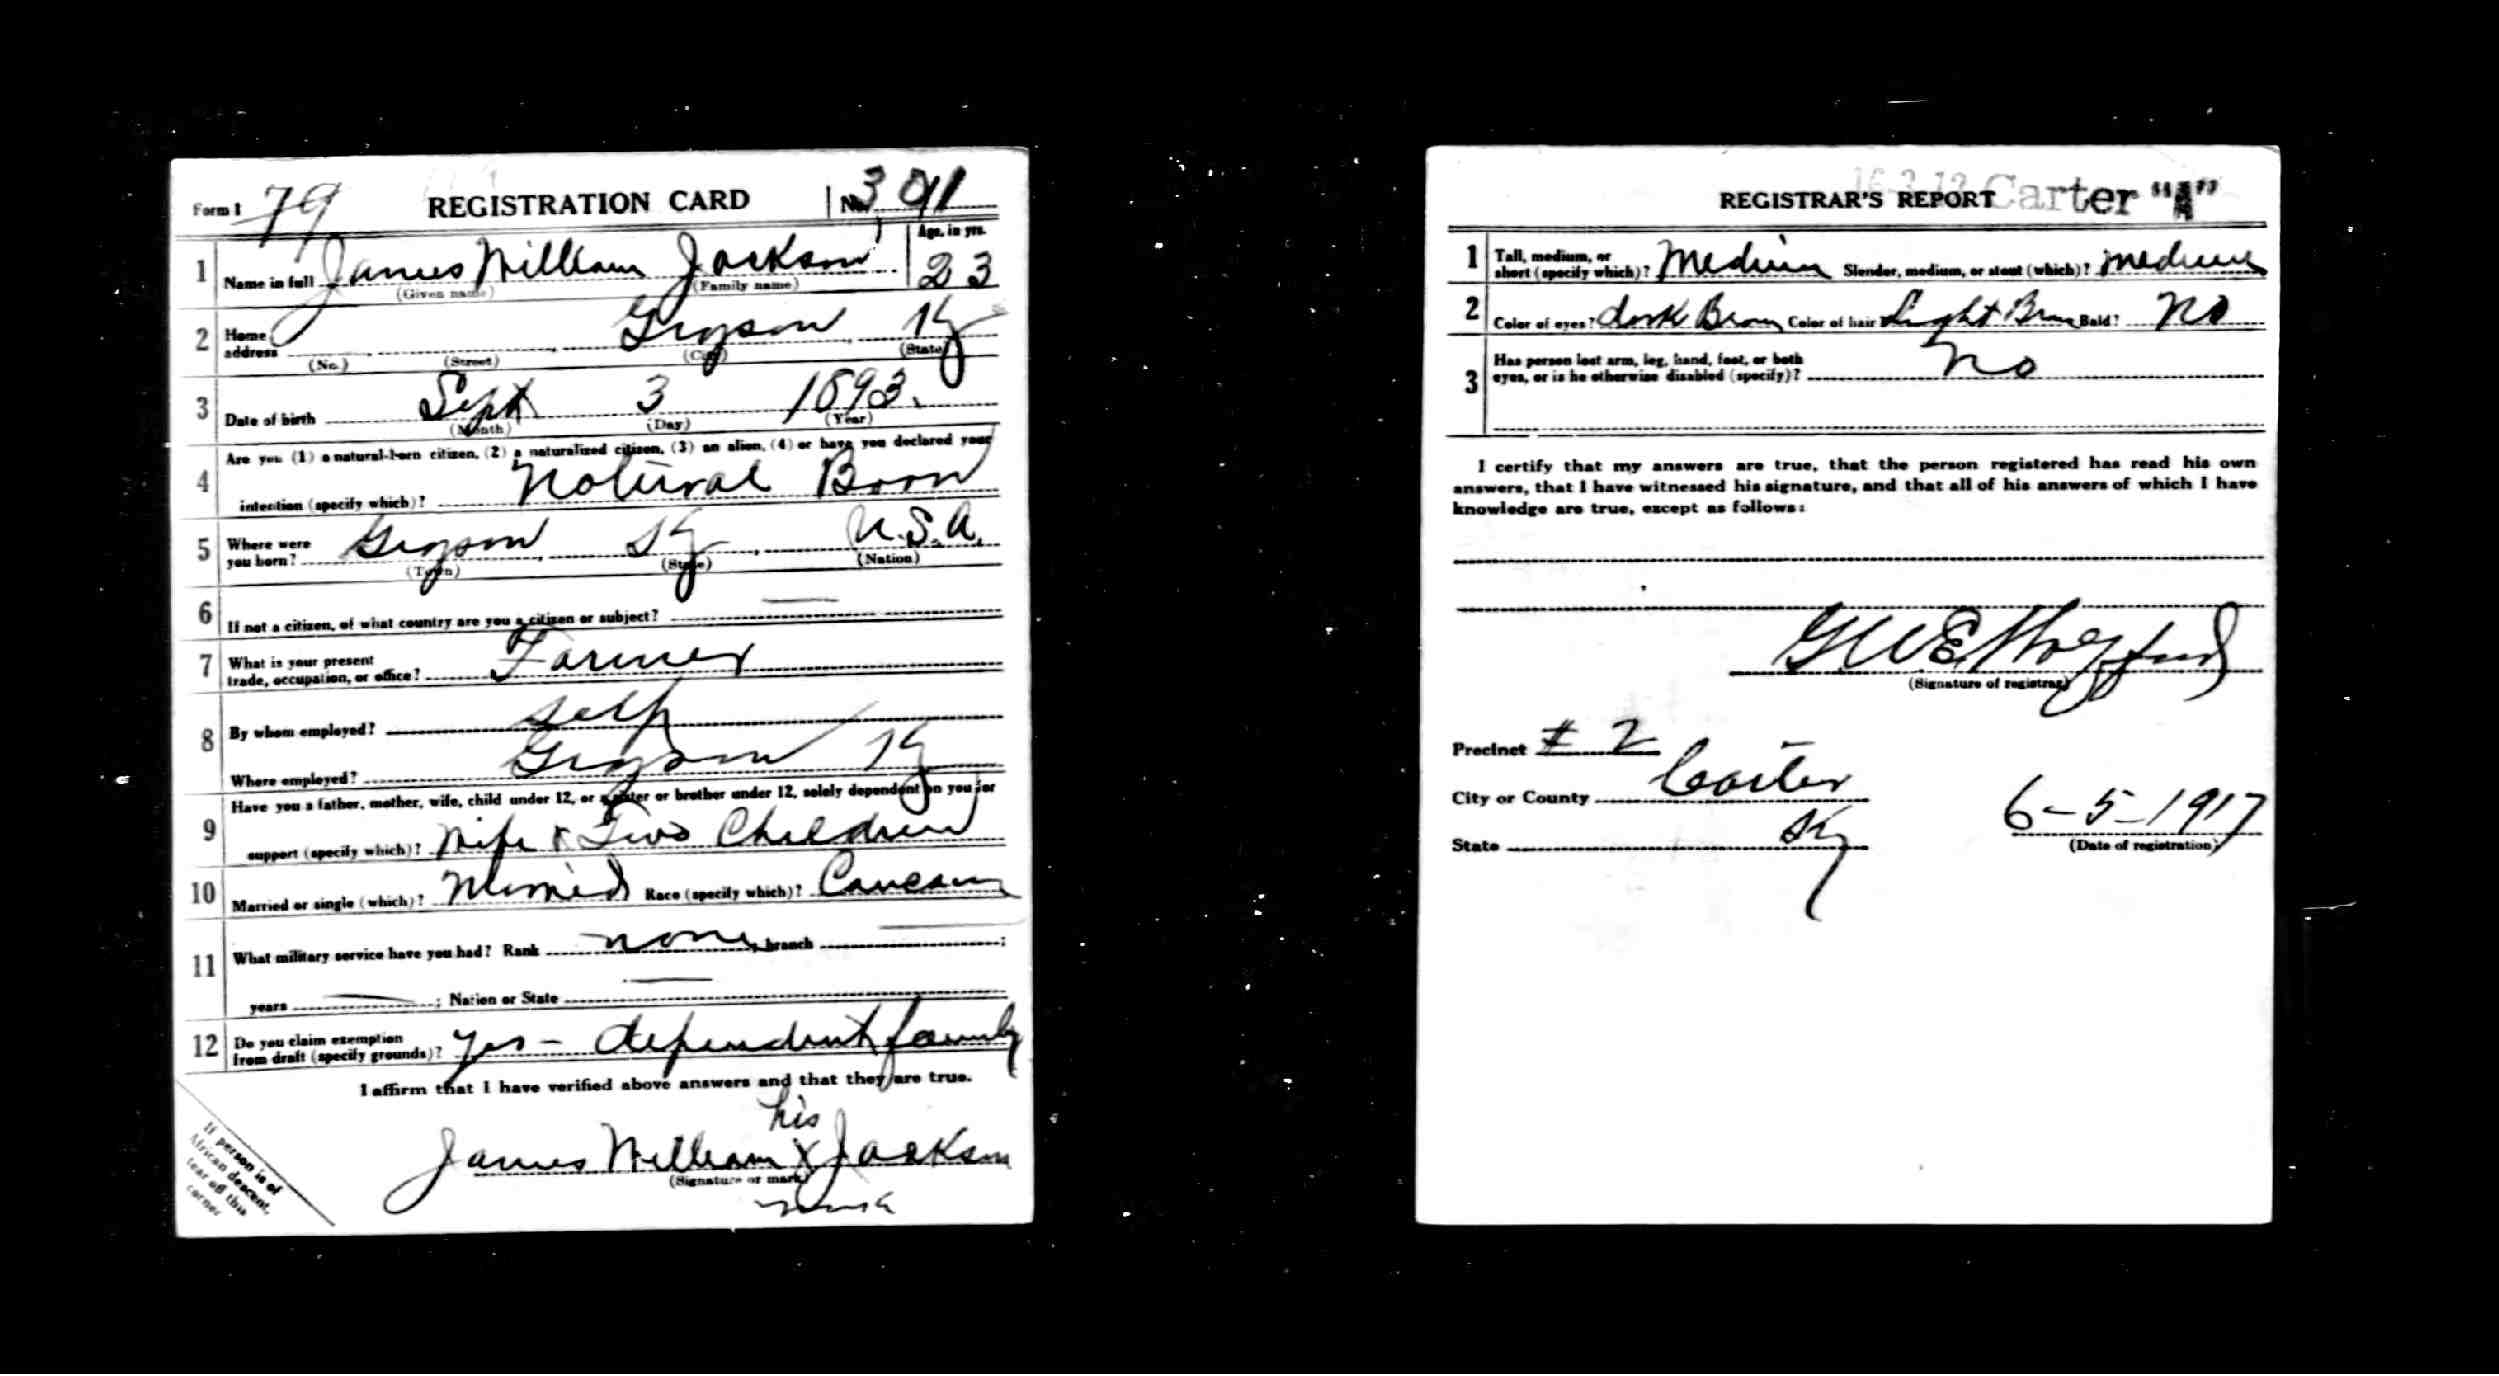 Form 1 79 REGISTRATION CARD No. 301
1 Name in full James William Jackson Age, in yrs. 23
(Given name) (Family name)
2 Home address Grayson Ky
(No.) (Street) (City) (State)
3 Date of birth Sept 3 1893.
(Month) (Day) (Year)
4 Are you (1) a natural-born citizen, (2) a naturalized citizen, (3) an alien, (4) or have you declared your
intention (specify which)? Natural Born
5 Where were you born? Grayson Ky U.S.A.
(Town) (State) (Nation)
6 If not a citizen, of what country are you a citizen or subject? —
7 What is your present trade, occupation, or office? Farmer
8 By whom employed? Self
Where employed? Grayson Ky
9 Have you a father, mother, wife, child under 12, or a sister or brother under 12, solely dependent on you for
support (specify which)? Wife & Two Children
10 Married or single (which)? Married Race (specify which)? Caucasian
11 What military service have you had? Rank none, branch —;
years —; Nation or State —
12 Do you claim exemption from draft (specify grounds)? Yes – dependent family
I affirm that I have verified above answers and that they are true.
his
James William X Jackson
(Signature or mark)
mark
If person is of
African descent,
tear off this
corner
REGISTRAR'S REPORT Carter "A"
1 Tall, medium, or short (specify which)? Medium Slender, medium, or stout (which)? medium
2 Color of eyes? dark Brown Color of hair? Light Brown Bald? No
3 Has person lost arm, leg, hand, foot, or both
eyes, or is he otherwise disabled (specify)? No
I certify that my answers are true, that the person registered has read his own
answers, that I have witnessed his signature, and that all of his answers of which I have
knowledge are true, except as follows:
(Signature of registrar)
Precinct # 2
City or County Carter
State Ky 6-5-1917
(Date of registration)